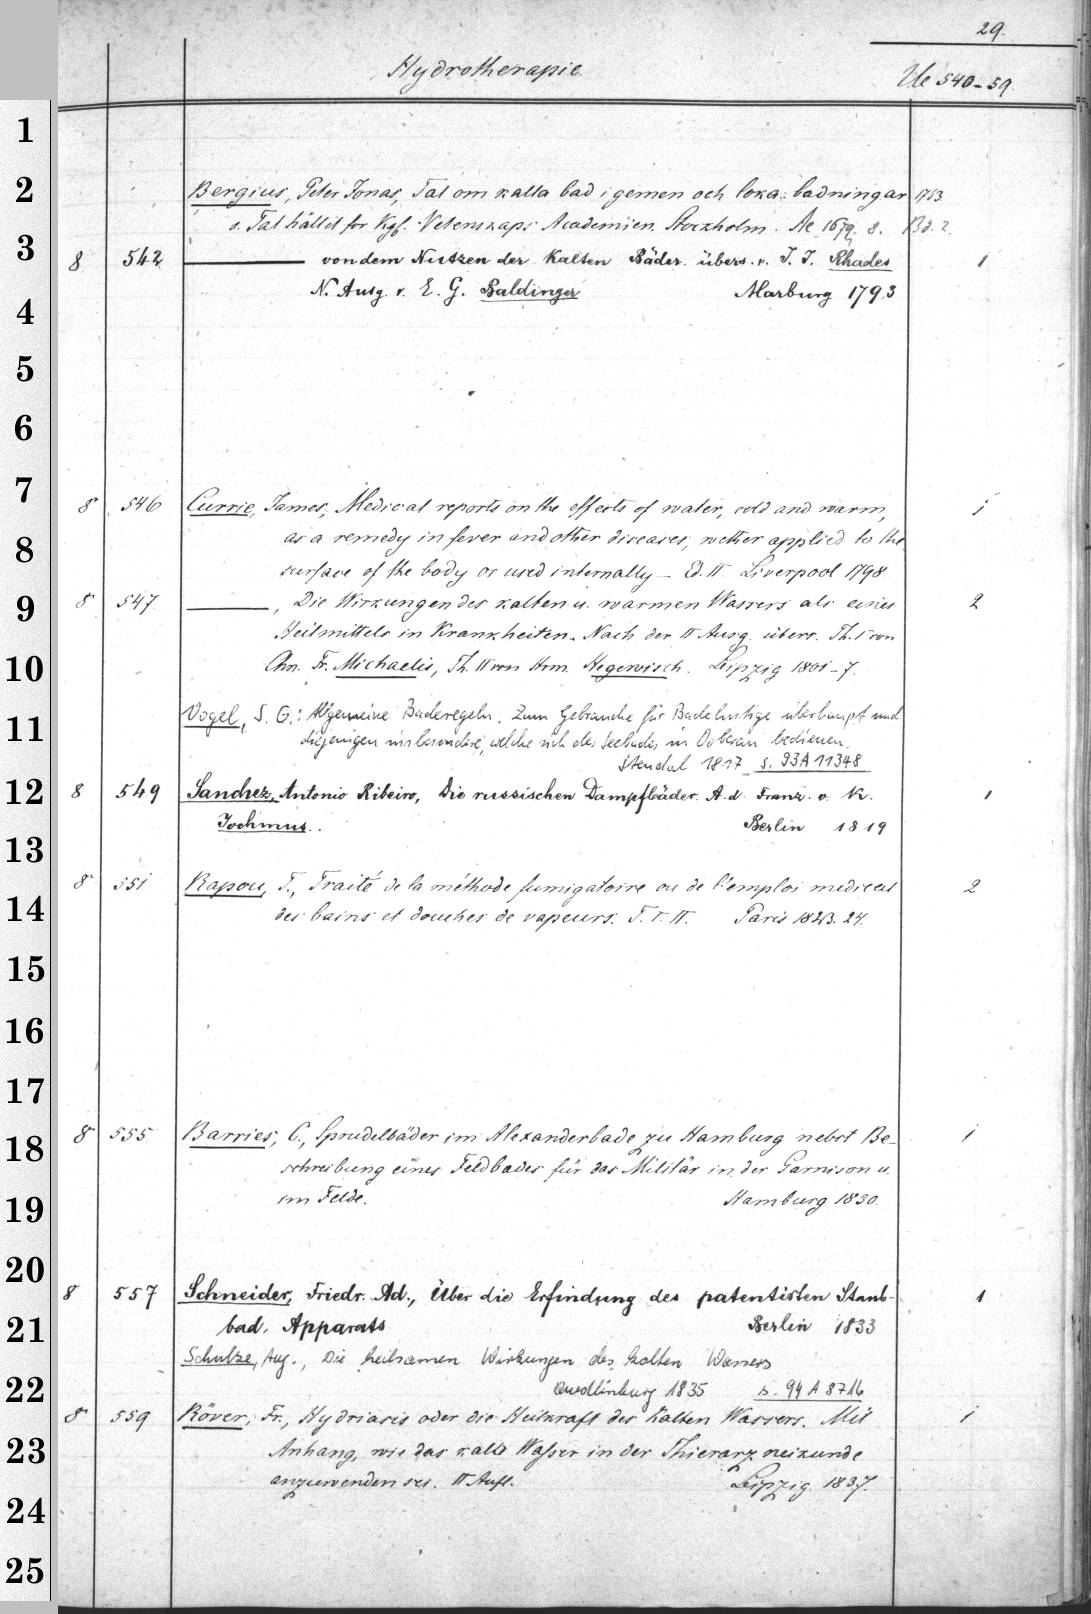 29.
Hydrotherapie. Ue 540-59.
1
2 Bergius, Peter Jonas, Tal om kalla bad i gemen och loka: badningar 1763
s. Tal hållit for Kgl. Vetenskaps Academien. Stockholm. Ae 1679. 8. Bd. 2.
3 8 542 ——— von dem Nutzen der Kalten Bäder. übers. v. J. J. Rhades 1
4 N. Ausg. v. E. G. Baldinger Marburg 1793
5
6
7 8 546 Currie, James, Medical reports on the effects of water, cold and warm, 1
8 as a remedy in fever and other diseases, wether applied to the
surface of the body or used internally - Ed. II Liverpool 1798
9 8 547 ———, Die Wirkungen des kalten u. warmen Wassers als eines 2
Heilmittels in Krankheiten. Nach der II Ausg. übers. Th. I von
10 Chn. Fr. Michaelis, Th. II von Hrm. Hegewisch. Leipzig 1801-7.
11 Vogel, S. G.: Allgemeine Baderegeln. Zum Gebrauche für Badelustige überhaupt und
diejenigen insbesondere, welche sich des Seebades in Doberan bedienen.
Stendal 1817 s. 93A11348
12 8 549 Sanchez, Antonio Ribeiro, Die russischen Dampfbäder. A. d. Franz. v. K. 1
13 Jochmus. Berlin 1819
8 551 Rapou, T., Traité de la méthode fumigatoire ou de l'emploi medical 2
14 des bains et douches de vapeurs. T. I. II. Paris 1823. 24.
15
16
17
18 8 555 Barries, C., Sprudelbäder im Alexanderbade zu Hamburg nebst Be- 1
schreibung eines Feldbades für das Militär in der Garnison u.
19 im Felde. Hamburg 1830.
20
8 557 Schneider, Friedr. Ad., Über die Erfindung des patentirten Staub- 1
21 bad. Apparats Berlin 1833
Schulze, Aug., Die heilsamen Wirkungen des kalten Wassers
22 Quedlinburg 1835 s. 94 A 8716
8 559 Röver, Fr., Hydriasis oder die Heilkraft des Kalten Wassers. Mit 1
23 Anhang, wie das kalte Waſser in der Thierarzneikunde
anzuwenden sei. II Aufl. Leipzig 1837.
24
25